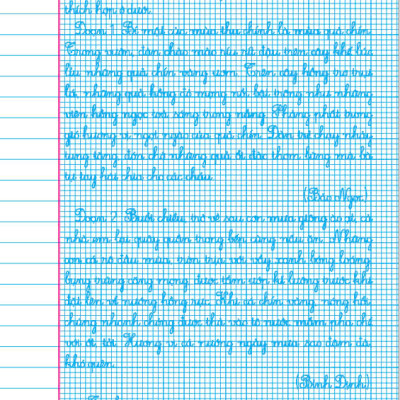 thích hợp ở dưới.
Đoạn 1: Bí mật của mùa thu chính là mùa quả chín.
Trong vườn, đàn chào mào ríu rít đậu trên cây khế lúc
lỉu những quả chín vàng ươm. Trên cây hồng trơ trụi
lá, những quả hồng đỏ mọng nổi bật trông như những
viên hồng ngọc toả sáng trong nắng. Thoảng phất trong
gió hương vị ngọt ngào của quả chín. Đàn trẻ chạy nhảy
tung tăng, đón chờ những quả ổi đào thơm lừng mà bà
tự tay hái chia cho các cháu.
(Bảo Ngọc)
Đoạn 2: Buổi chiều, trở về sau cơn mưa giông ào ạt, cả
nhà em lại quây quần trong bếp cùng nấu ăn. Những
con cá rô đầu mùa, tròn trục với vây xanh bóng loáng,
bụng trắng căng mọng được tẩm ướp kĩ lưỡng trước khi
đặt lên vỉ nướng hồng rực. Khi cá chín vàng, nóng hổi,
chúng nhanh chóng được thả vào tô nước mắm pha chế
với ớt, tỏi. Hương vị cá nướng ngày mưa sao đậm đà,
khó quên.
(Bình Định)